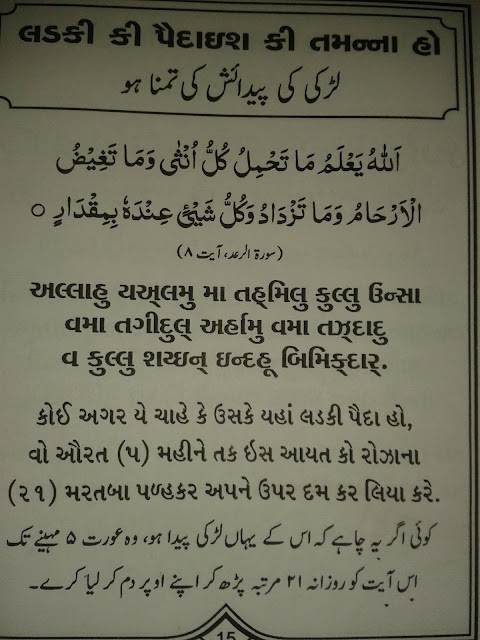 લડકી કી પૈદાઇશ કી તમન્ના હો
لڑکی کی پیدائش کی تمنا ہو
اَللّٰهُ يَعْلَمُ مَا تَحْمِلُ كُلُّ اُنْثٰى وَمَا تَغِيْضُ
الْاَرْحَامُ وَمَا تَزْدَادُ وَكُلُّ شَيْئٍ عِنْدَهٗ بِمِقْدَارٍ ○
(سورۃ الرعد، آیت ۸)
અલ્લાહુ યઅ્લમુ મા તહ્મિલુ કુલ્લુ ઉન્સા
વમા તગીદુલ્ અર્હામુ વમા તઝ્દાદુ
વ કુલ્લુ શય્ઇન્ ઇન્દહૂ બિમિક્દાર્.
કોઈ અગર યે ચાહે કે ઉસકે યહાં લડકી પૈદા હો,
વો ઔરત (૫) મહીને તક ઇસ આયત કો રોઝાના
(૨૧) મરતબા પળ્હકર અપને ઉપર દમ કર લિયા કરે.
کوئی اگر یہ چاہے کہ اس کے یہاں لڑکی پیدا ہو، وہ عورت ۵ مہینے تک
اس آیت کو روزانہ ۲۱ مرتبہ پڑھ کر اپنے اوپر دم کر لیا کرے۔
15